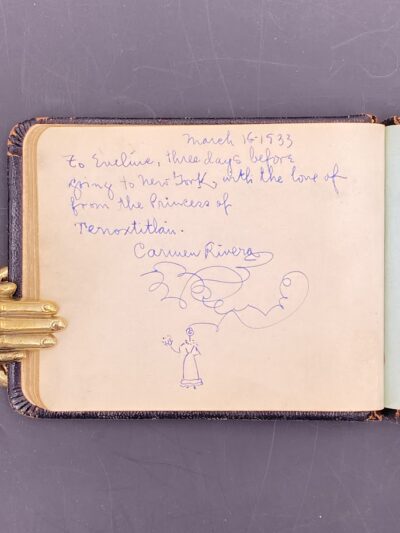 March 16-1933
to Eveline, three days before
going to New York, with the love of
from the Princess of
Tenoxtitlán.
Carmen Rivera